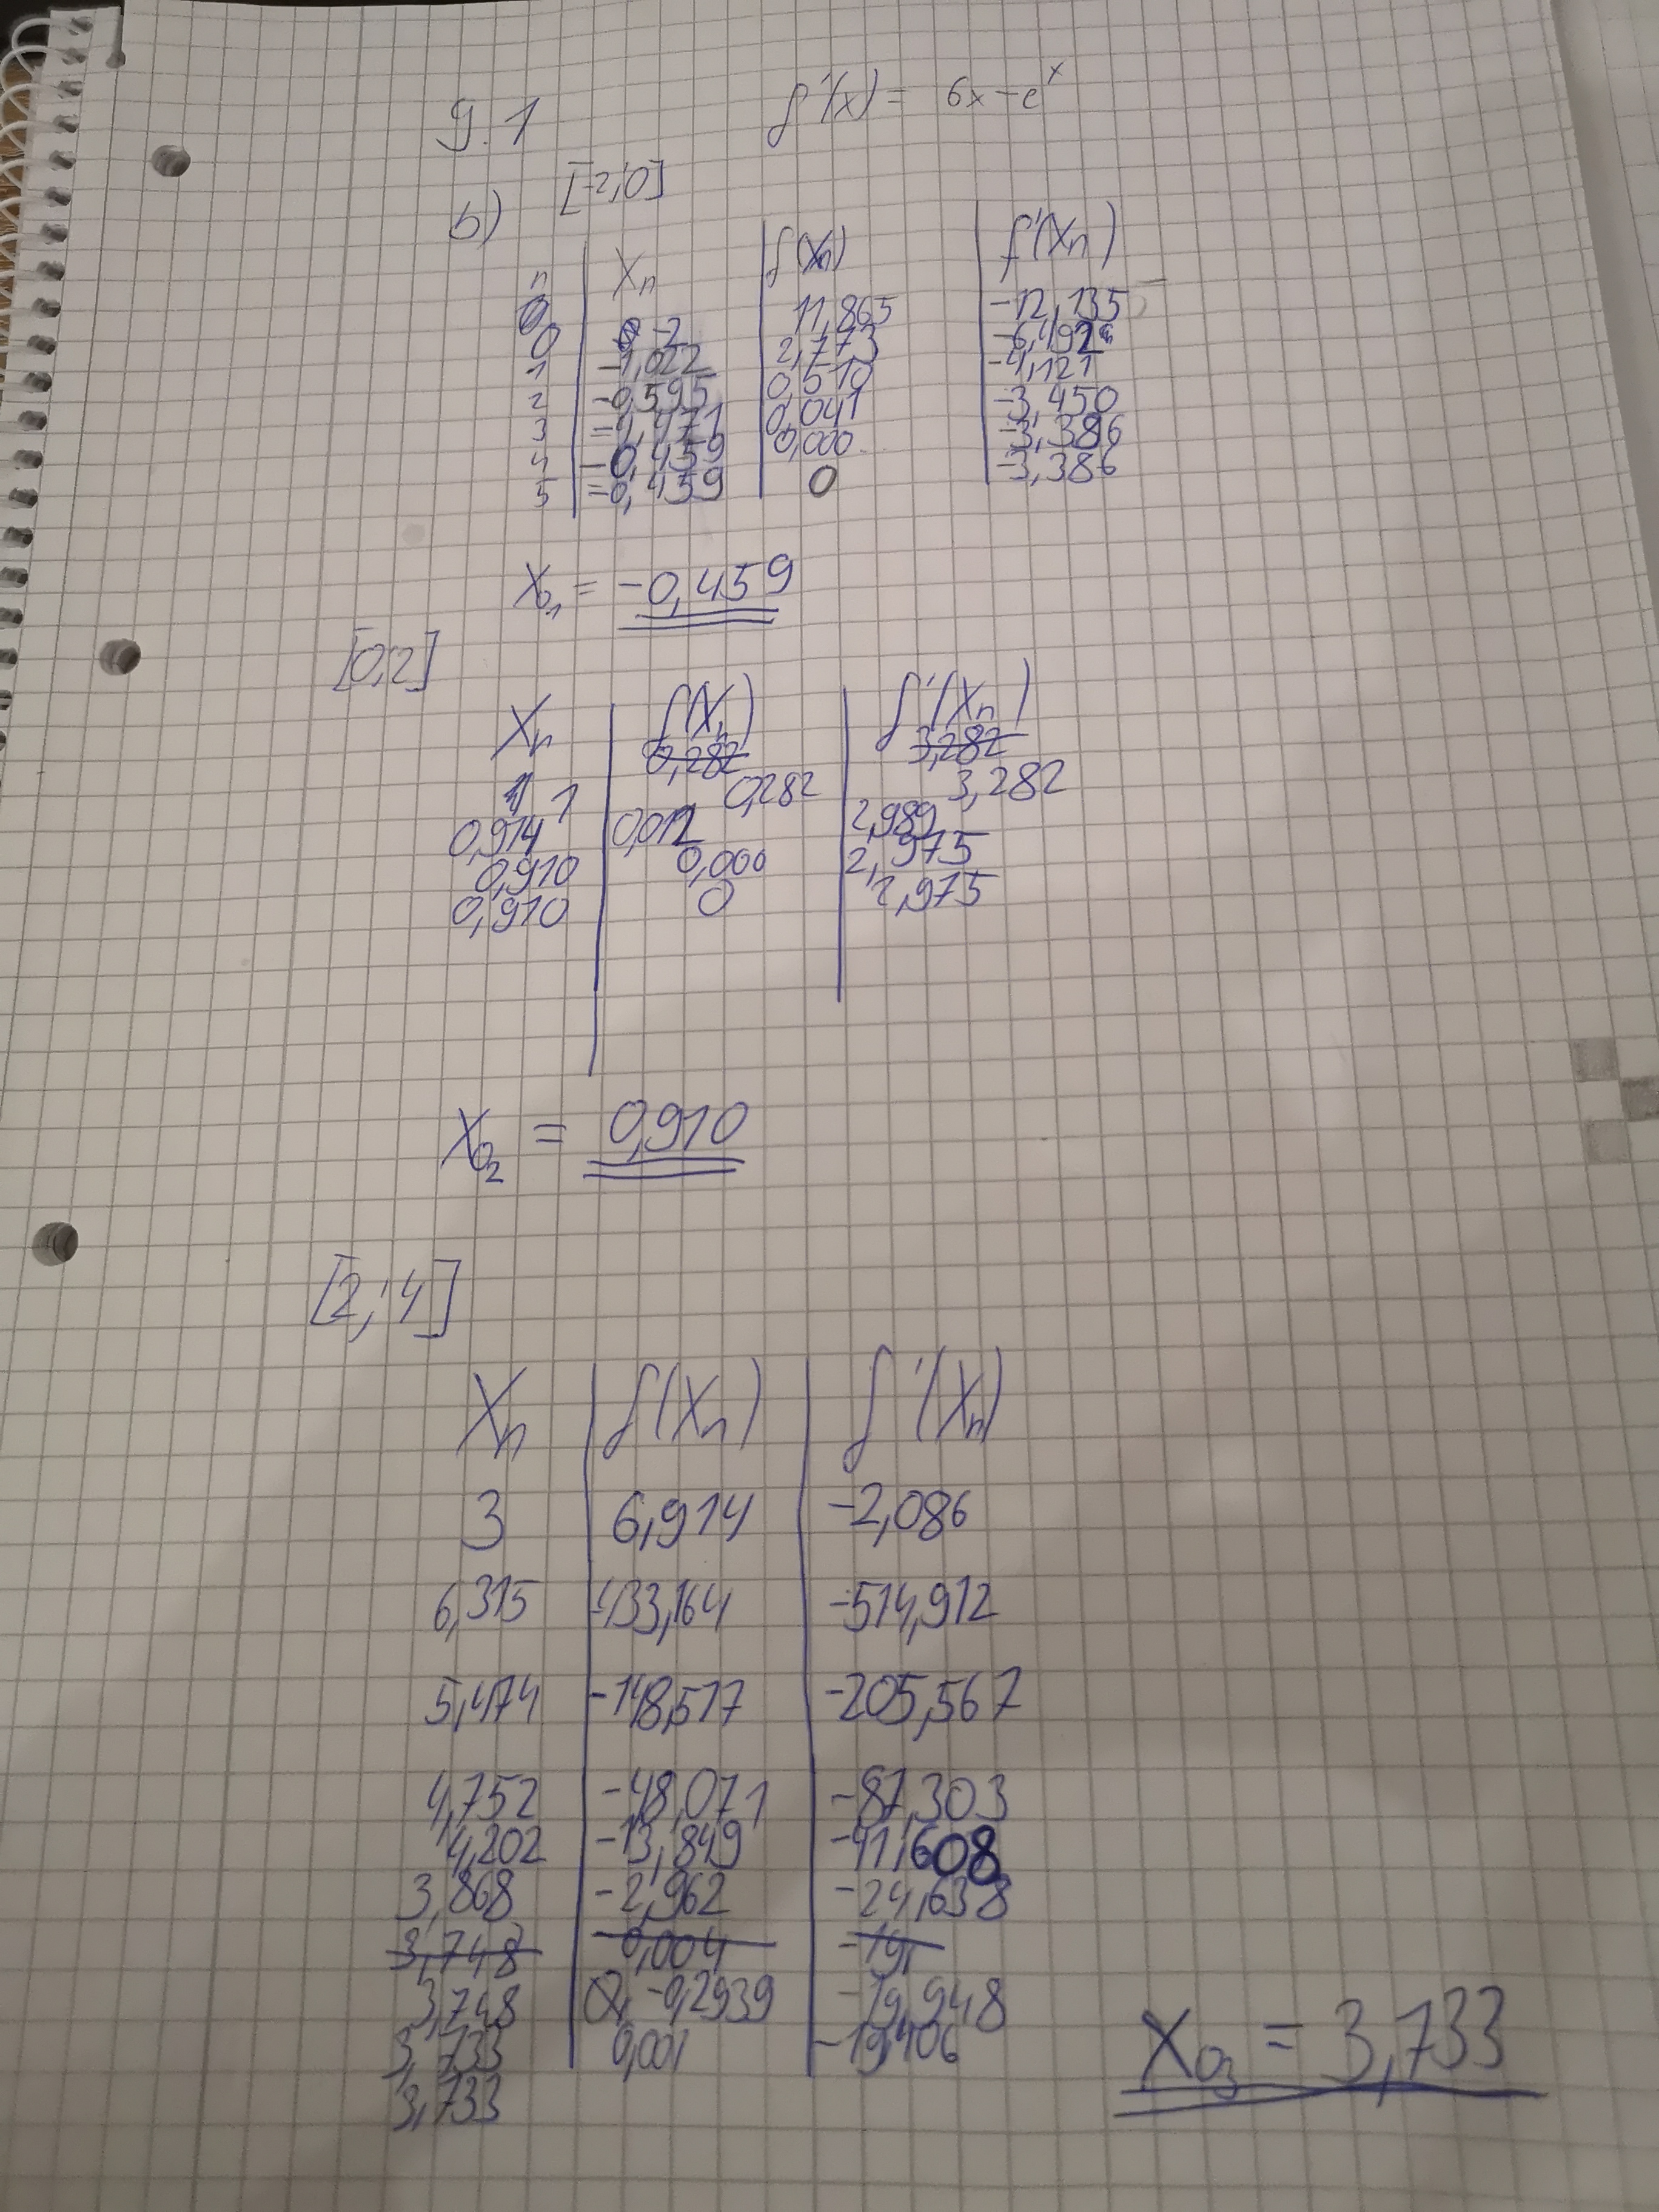 9.1 f'(x) = 6x-e^x
b) [-2,0]
n Xn f(Xn) f'(Xn)
0 -2 11,865 -12,135
1 -1,022 2,773 -6,492
2 -0,595 0,510 -4,121
3 -0,471 0,041 -3,450
4 -0,459 0,000 -3,386
5 -0,459 0 -3,386
X01 = -0,459
[0;2]
Xn f(Xn) f'(Xn)
0,282 3,282
1 0,282 3,282
0,914 0,012 2,989
0,910 0,000 2,975
0,910 0 2,975
X02 = 0,910
[2;4]
Xn f(Xn) f'(Xn)
3 6,914 -2,086
6,315 -433,164 -514,912
5,474 -148,517 -205,567
4,752 -48,071 -87,303
4,202 -13,849 -41,608
3,868 -2,962 -24,638
3,748 0,004 -19,
3,748 -0,2939 -19,948
3,733 0,001 -19,406
3,733
X03 = 3,733